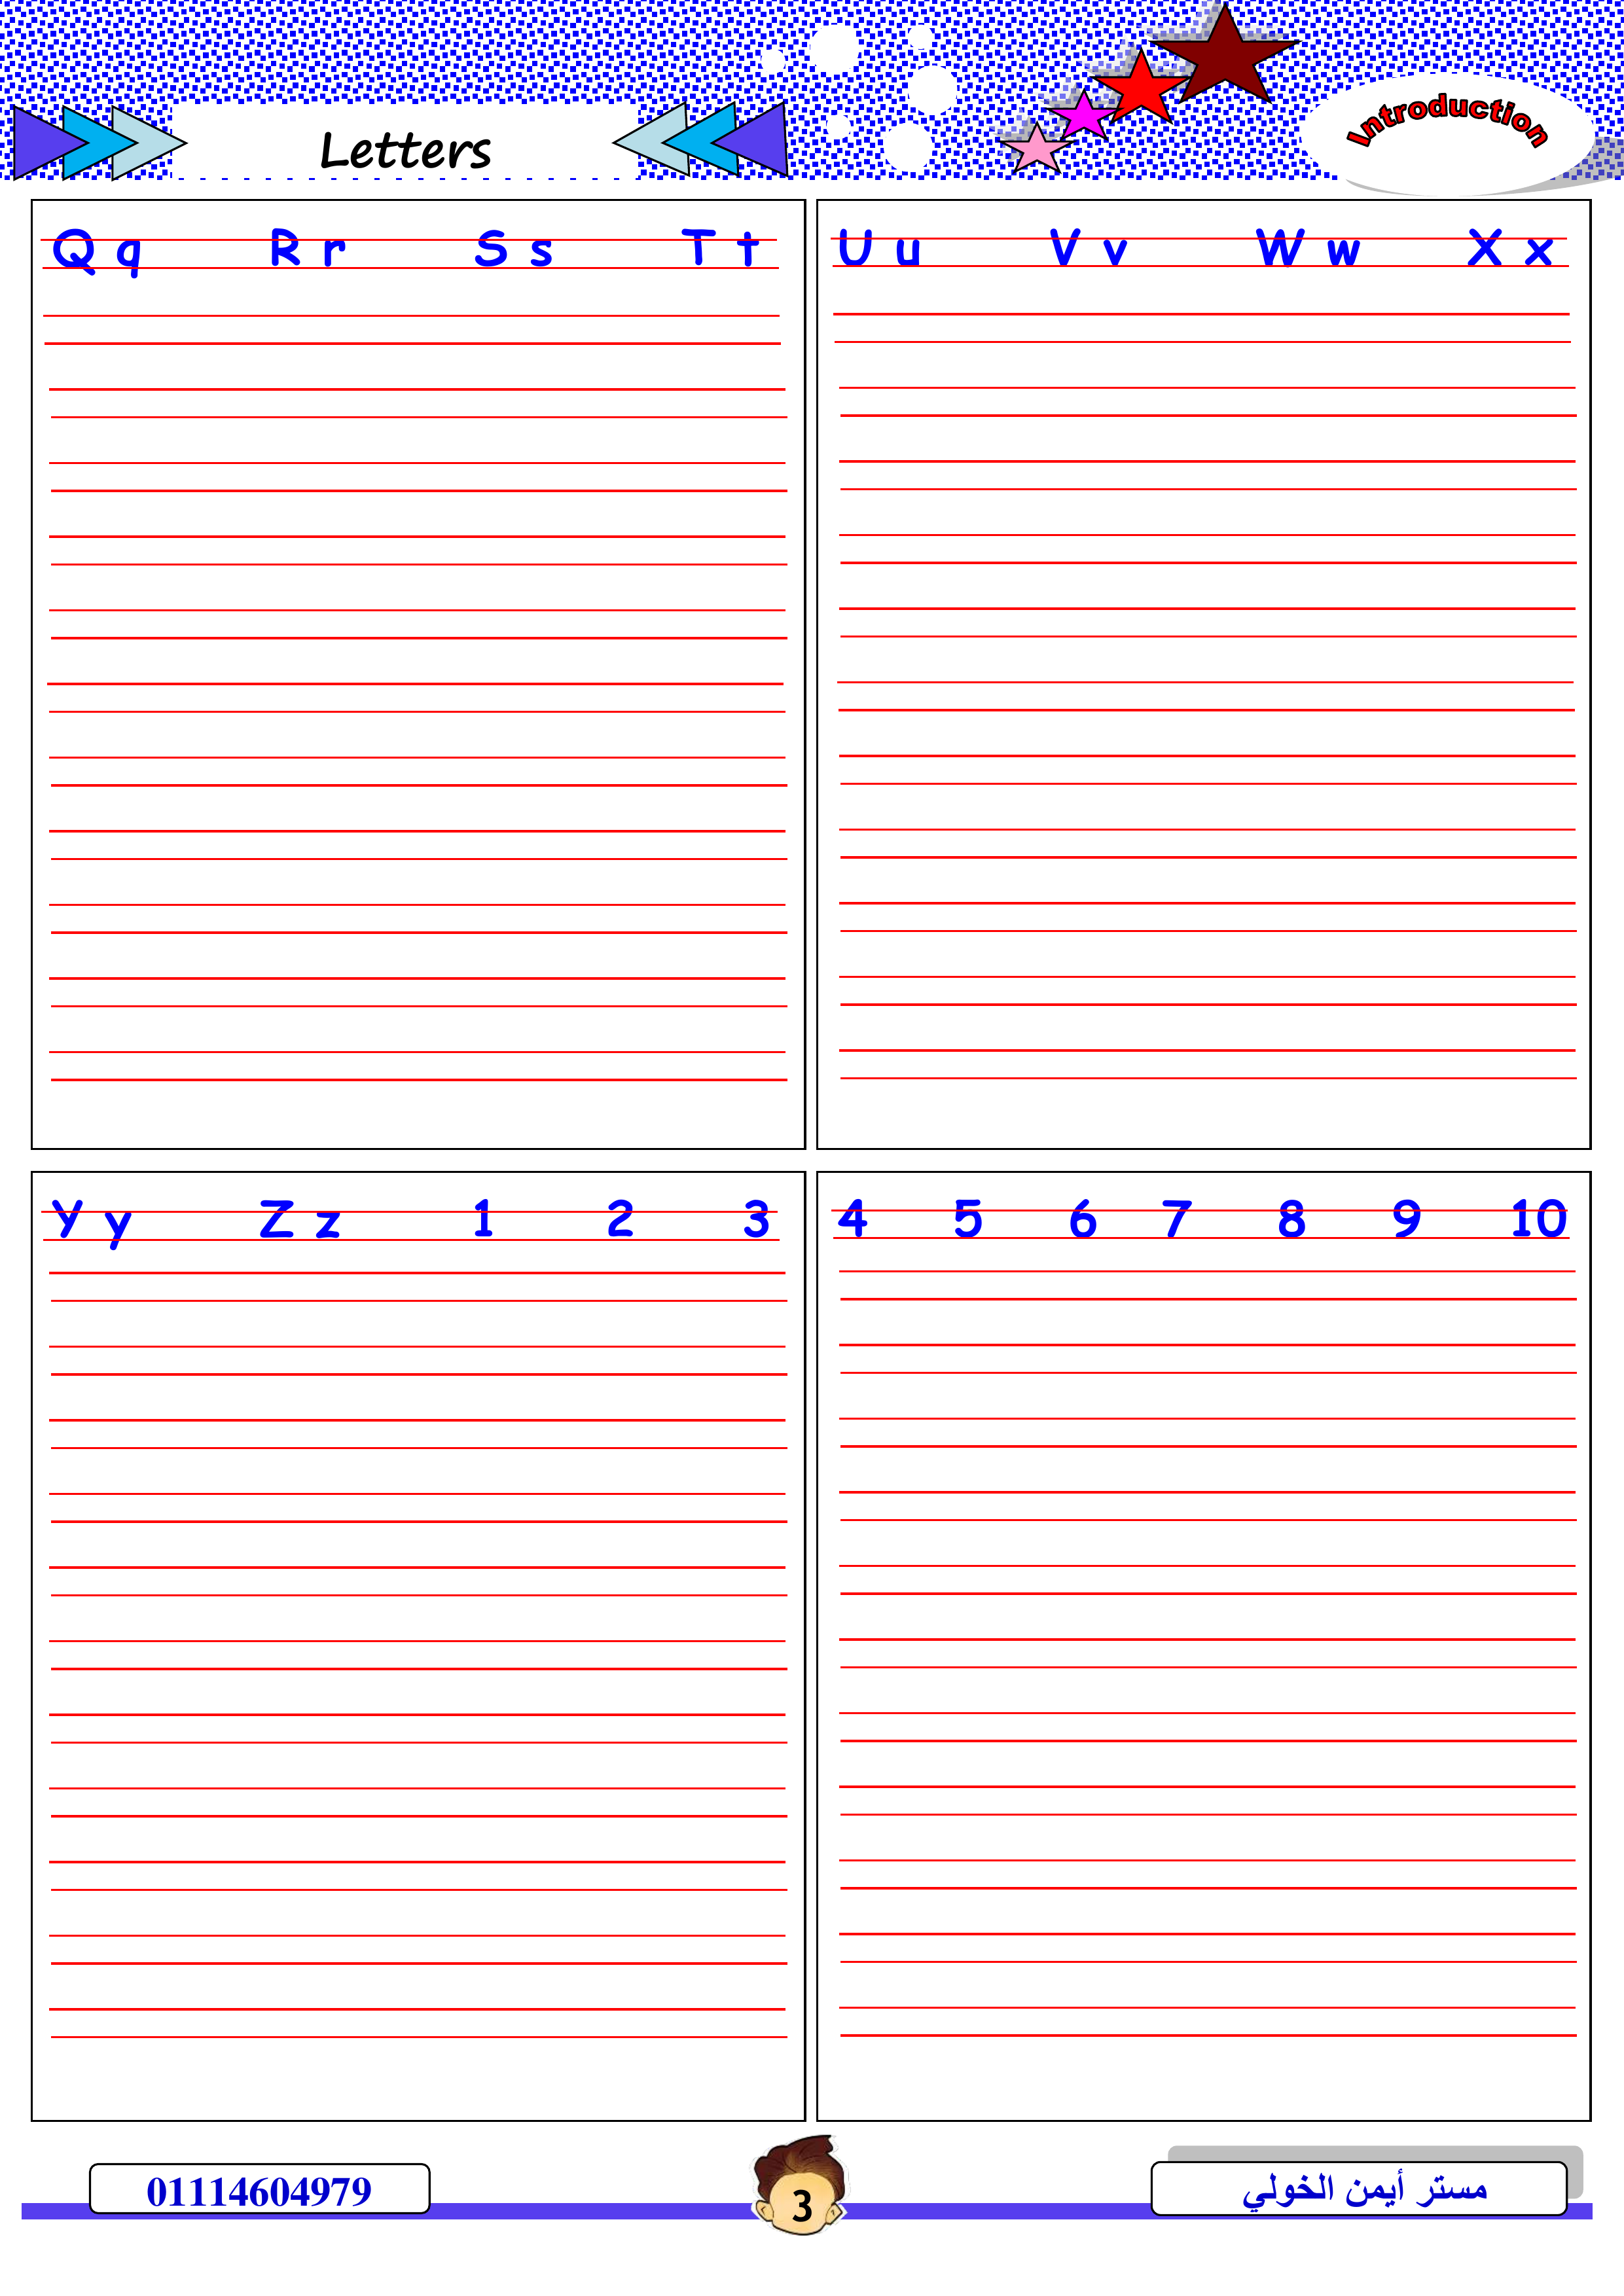 Letters
Introduction
Q q R r S s T t
U u V v W w X x
Y y Z z 1 2 3
4 5 6 7 8 9 10
01114604979
3
مستر أيمن الخولي